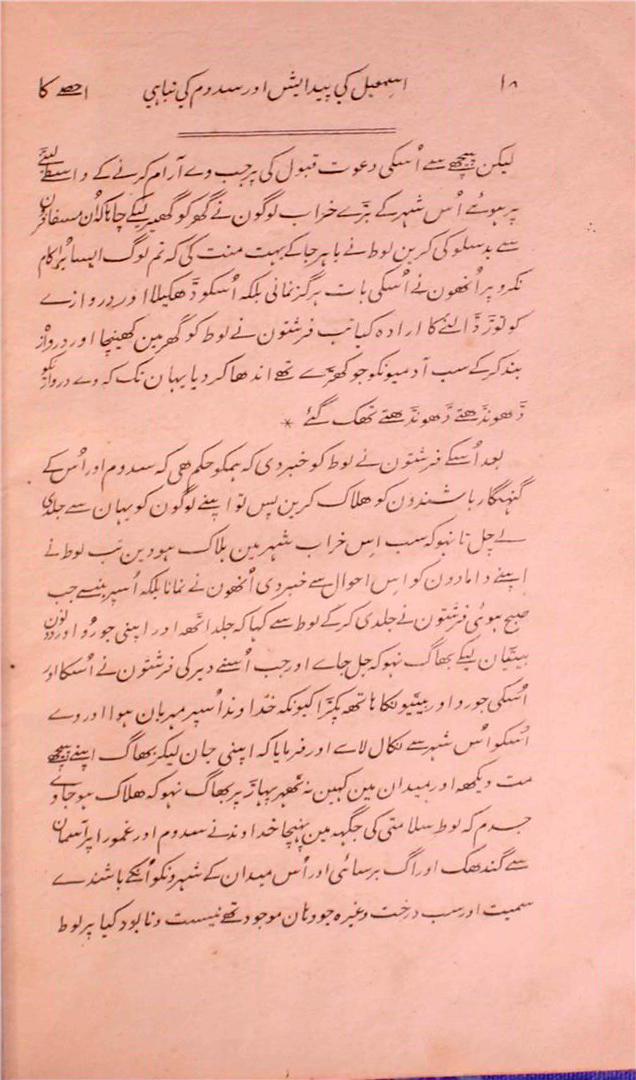 ۱۸ اسمعیل کی پیدایش اور سدوم کی تباہی
لیکن پیچھے سے اُسکی دعوت قبول کی پر جب وے آرام کرنے کے واسطے لیٹے
پر ہوئے اُس شہر کے بڑے خراب لوگون نے گھر کو گھیر لیکے چاہا کہ اُن مسافرون
سے بدسلوکی کرین لوط نے باہر جاکے بہت منت کی کہ تم لوگ ایسا بُرا کام
نکرو پر اُنھون نے اُسکی بات ہرگز نمانی بلکہ اُسکو دھکیلا اور دروازے
کو توڑ ڈالنے کا ارادہ کیا تب فرشتون نے لوط کو گھر مین کھینچا اور دروازہ
بند کرکے سب آدمیونکو جو کھڑے تھے اندھا کر دیا یہان تک کہ وے دروازیکو
ڈھونڈھتے ڈھونڈھتے تھک گئے *
بعد اُسکے فرشتون نے لوط کو خبر دی کہ ہمکو حکم هی کہ سدوم اور اُس کے
گنہگار باشندون کو هلاک کرین پس تو اپنے لوگون کو یہان سے جلدی
لے چل تا نہو کہ سب اِس خراب شہر مین ہلاک ہووین تب لوط نے
اپنے دامادون کو اِس احوال سے خبر دی اُنھون نے نمانا بلکہ اُسپر ہنسے جب
صبح ہوئی فرشتون نے جلدی کرکے لوط سے کہا کہ جلد اُٹھ اور اپنی جورو اور دونون
بیٹیان لیکے بھاگ نہو کہ جل جاے اور جب اُسنے دیر کی فرشتون نے اُسکا اور
اُسکی جورو اور بیٹیونکا ہاتھ پکڑا کیونکہ خداوند اُسپر مہربان ہوا اور وے
اُسکو اُس شہر سے نکال لاے اور فرمایا کہ اپنی جان لیکر بھاگ اپنے پیچھے
مت دیکھ اور میدان مین کہین نہ ٹھہر پہاڑ پر بھاگ نہو کہ هلاک ہو جاوے
جسدم کہ لوط سلامتی کی جگہہ مین پہنچا خداوند نے سدوم اور غمورا پر آسمان
سے گندھک اور آگ برسائی اور اُس میدان کے شہرونکو اُنکے باشندے
سمیت اور سب درخت وغیرہ جو وہان موجود تھے نیست و نابود کیا پر لوط